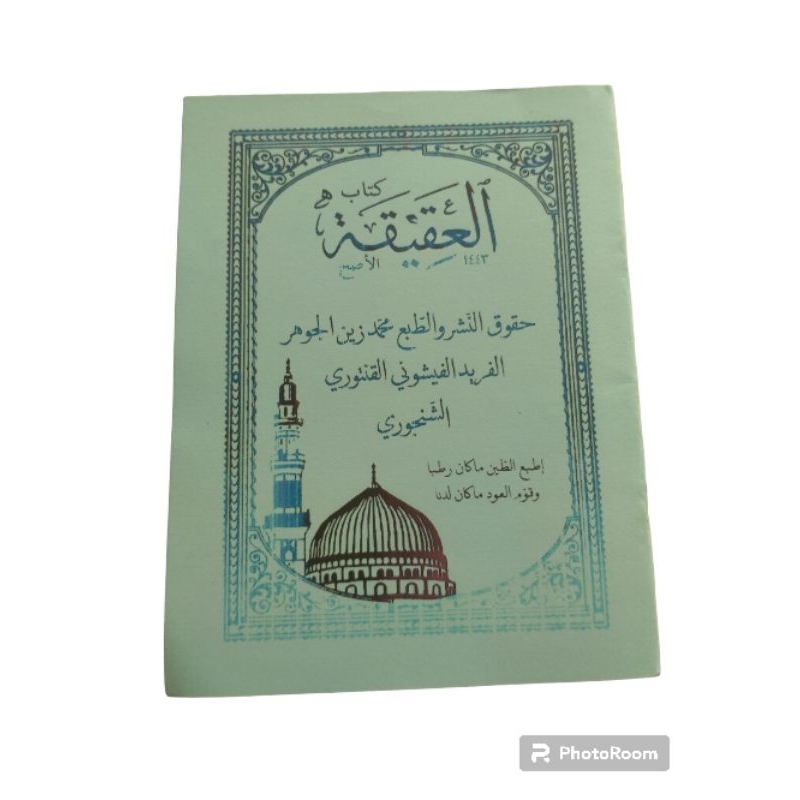 كتاب
العقيقة
١٤٤٣ هـ
الأصح
حقوق النشر والطبع محمد زين الجوهر
الفريد الفيشوني القنتوري
الشنجوري
إطبع الطين ماكان رطبا
وقوّم العود ماكان لدنا
PhotoRoom